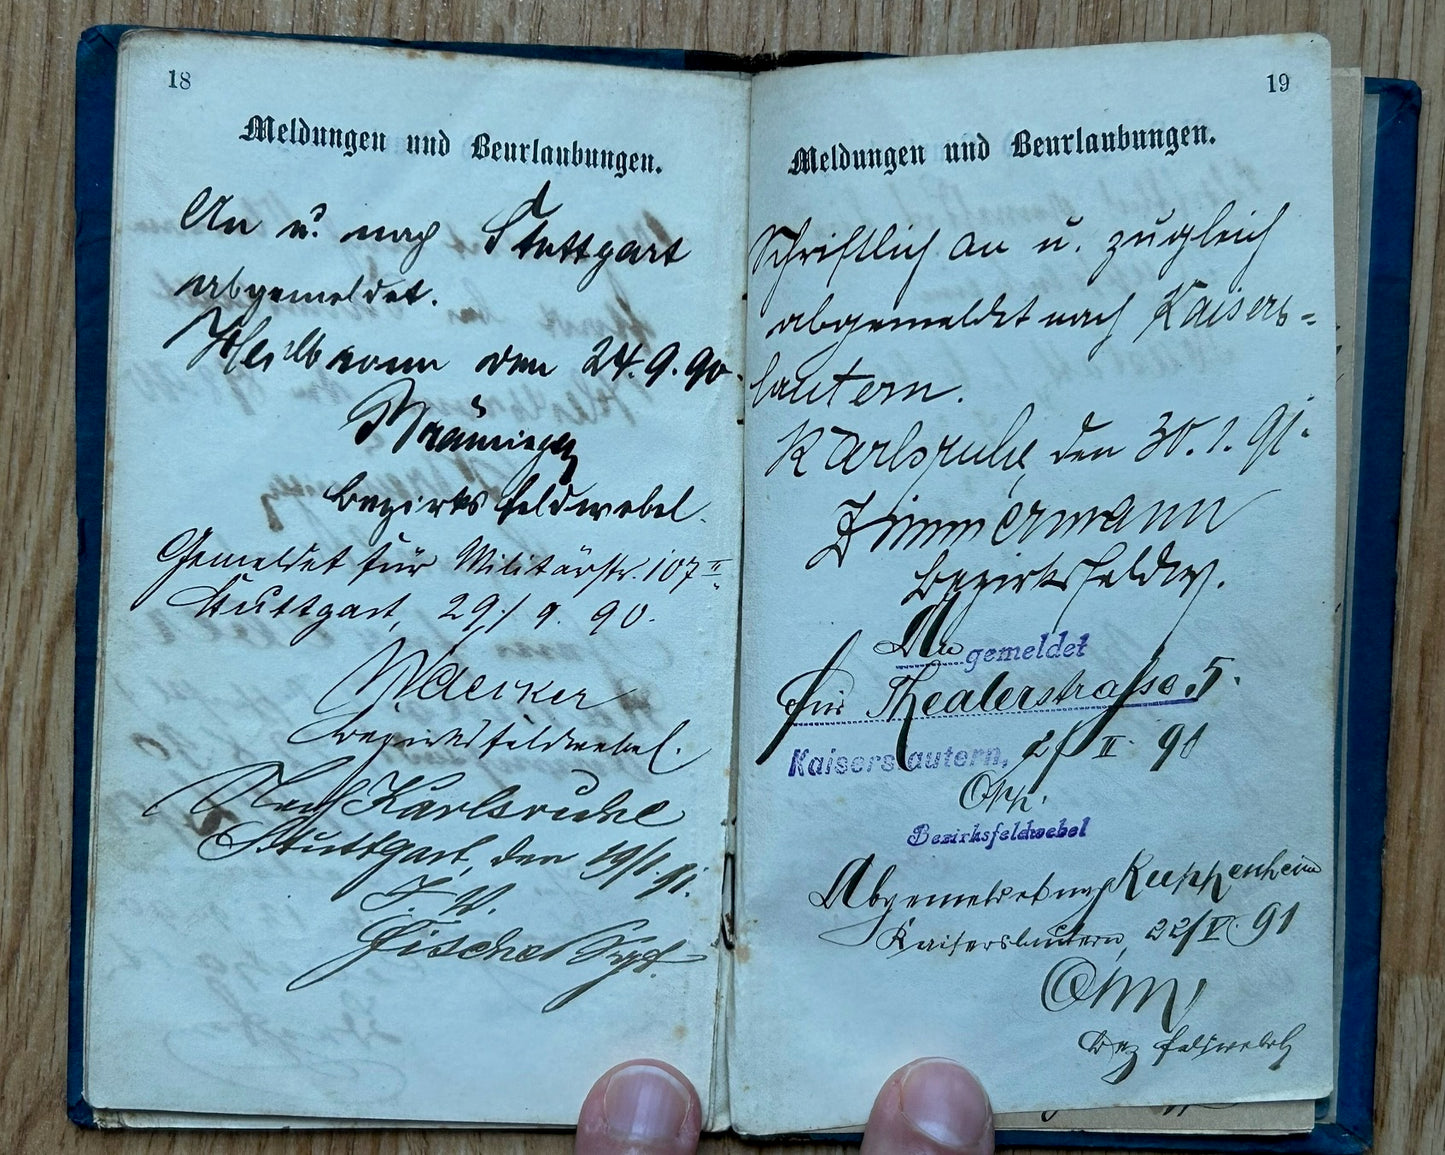 18
Meldungen und Beurlaubungen.
An u. nach Stuttgart
abgemeldet.
Heilbronn den 24.9.90.
Bezirksfeldwebel.
Gemeldet für Militärstr. 107 II
Stuttgart, 29/9. 90.
Waecker
Bezirksfeldwebel.
Nach Karlsruhe
Stuttgart, den 19/1.91.
I. V.
Fischer Sergt.
19
Meldungen und Beurlaubungen.
Schriftlich an u. zugleich
abgemeldet nach Kaisers-
lautern.
Karlsruhe, den 30.1.91.
Zimmermann
Bezirksfeldw.
An gemeldet
für Theaterstrasse 5.
Kaiserslautern, 2/II. 91
Bezirksfeldwebel
Abgemeldet nach Kuppenheim
Kaiserslautern, 22/IV. 91
Bez feldwebel